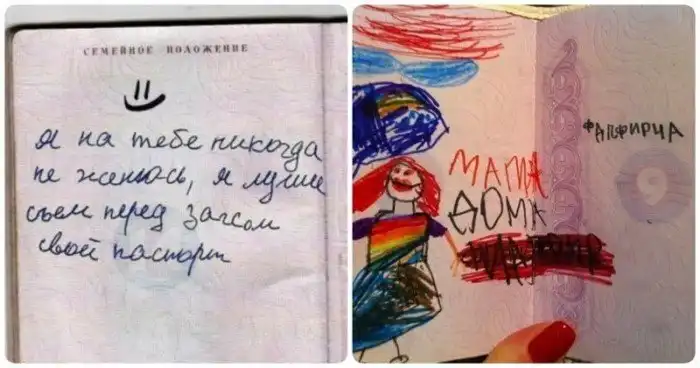 СЕМЕЙНОЕ ПОЛОЖЕНИЕ
Я на тебе никогда
не женюсь, я лучше
съем перед загсом
свой паспорт
МАМА
ДОМА
ФАПФИРЧА
9